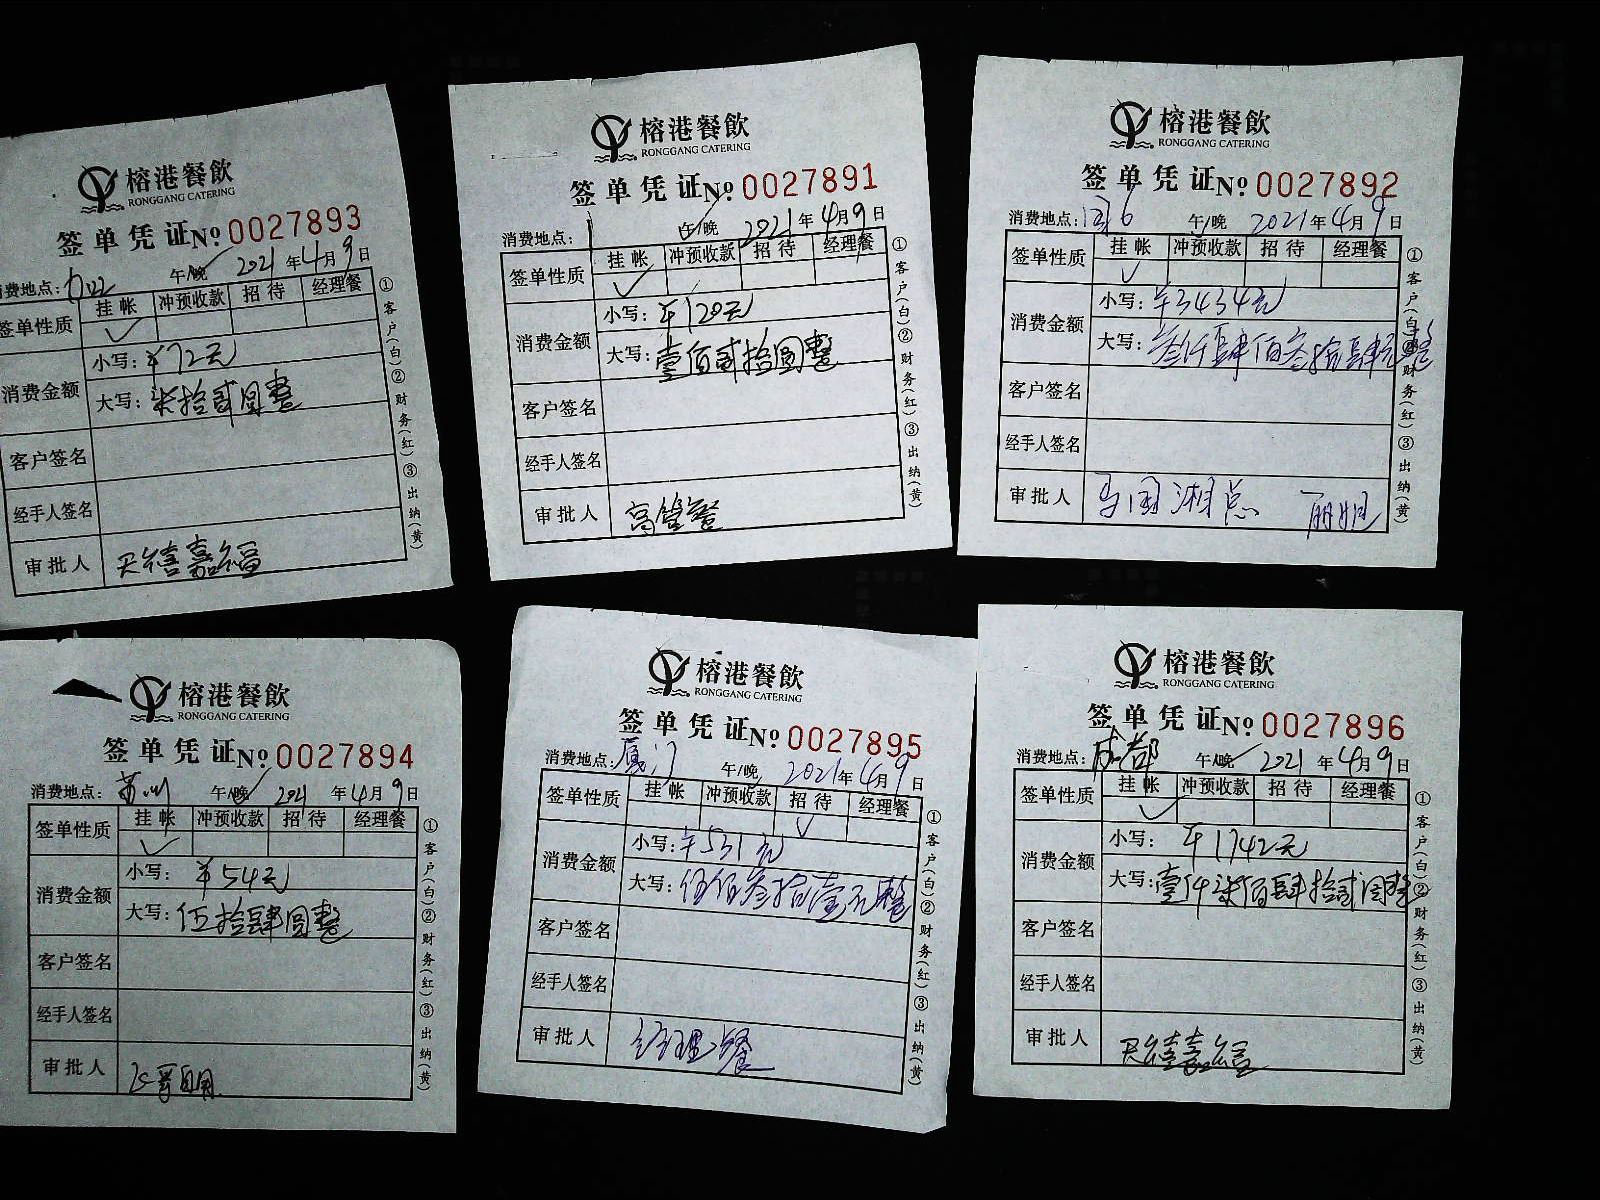 榕港餐飲
RONGGANG CATERING
签单凭证 No 0027893
消费地点: 午/晚 2021年4月9日
签单性质 挂帐 冲预收款 招待 经理餐
✓
消费金额 小写: ¥72元
大写: 柒拾贰圆整
客户签名
经手人签名
审批人 天禧嘉福
①客户(白)②财务(红)③出纳(黄)
榕港餐飲
RONGGANG CATERING
签单凭证 No 0027891
消费地点: 午/晚 2021年4月9日
签单性质 挂帐 冲预收款 招待 经理餐
✓
消费金额 小写: ¥120元
大写: 壹佰贰拾圆整
客户签名
经手人签名
审批人 高管餐
①客户(白)②财务(红)③出纳(黄)
榕港餐飲
RONGGANG CATERING
签单凭证 No 0027892
消费地点: 午/晚 2021年4月9日
签单性质 挂帐 冲预收款 招待 经理餐
✓
消费金额 小写: ¥3434元
大写: 叁仟肆佰叁拾肆元整
客户签名
经手人签名
审批人
①客户(白)②财务(红)③出纳(黄)
榕港餐飲
RONGGANG CATERING
签单凭证 No 0027894
消费地点: 苏州 午/晚 2021年4月9日
签单性质 挂帐 冲预收款 招待 经理餐
✓
消费金额 小写: ¥54元
大写: 伍拾肆圆整
客户签名
经手人签名
审批人
①客户(白)②财务(红)③出纳(黄)
榕港餐飲
RONGGANG CATERING
签单凭证 No 0027895
消费地点: 厦门 午/晚 2021年4月9日
签单性质 挂帐 冲预收款 招待 经理餐
✓
消费金额 小写: ¥531元
大写: 伍佰叁拾壹元整
客户签名
经手人签名
审批人 经理餐
①客户(白)②财务(红)③出纳(黄)
榕港餐飲
RONGGANG CATERING
签单凭证 No 0027896
消费地点: 成都 午/晚 2021年4月9日
签单性质 挂帐 冲预收款 招待 经理餐
✓
消费金额 小写: ¥1742元
大写: 壹仟柒佰肆拾贰圆整
客户签名
经手人签名
审批人 天禧嘉福
①客户(白)②财务(红)③出纳(黄)